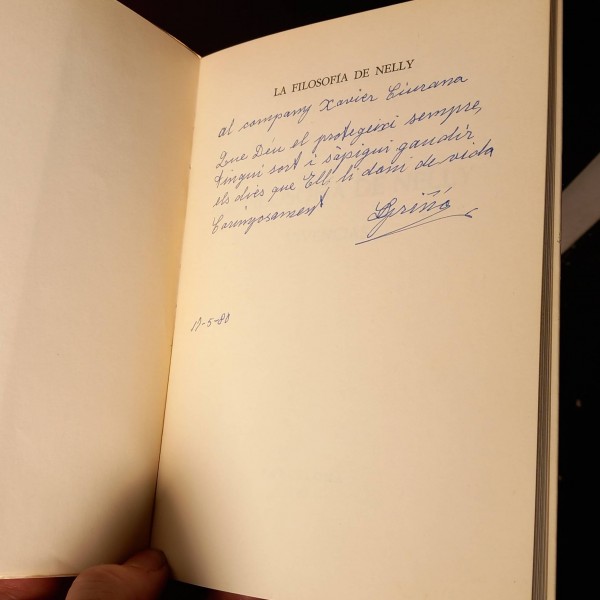 LA FILOSOFÍA DE NELLY
al company Xavier Ciurana
Que Déu el protegeixi sempre,
tingui sort i sàpigui gaudir
els dies que Ell, li doni de vida
Carinyosament
Griñó
17-5-80